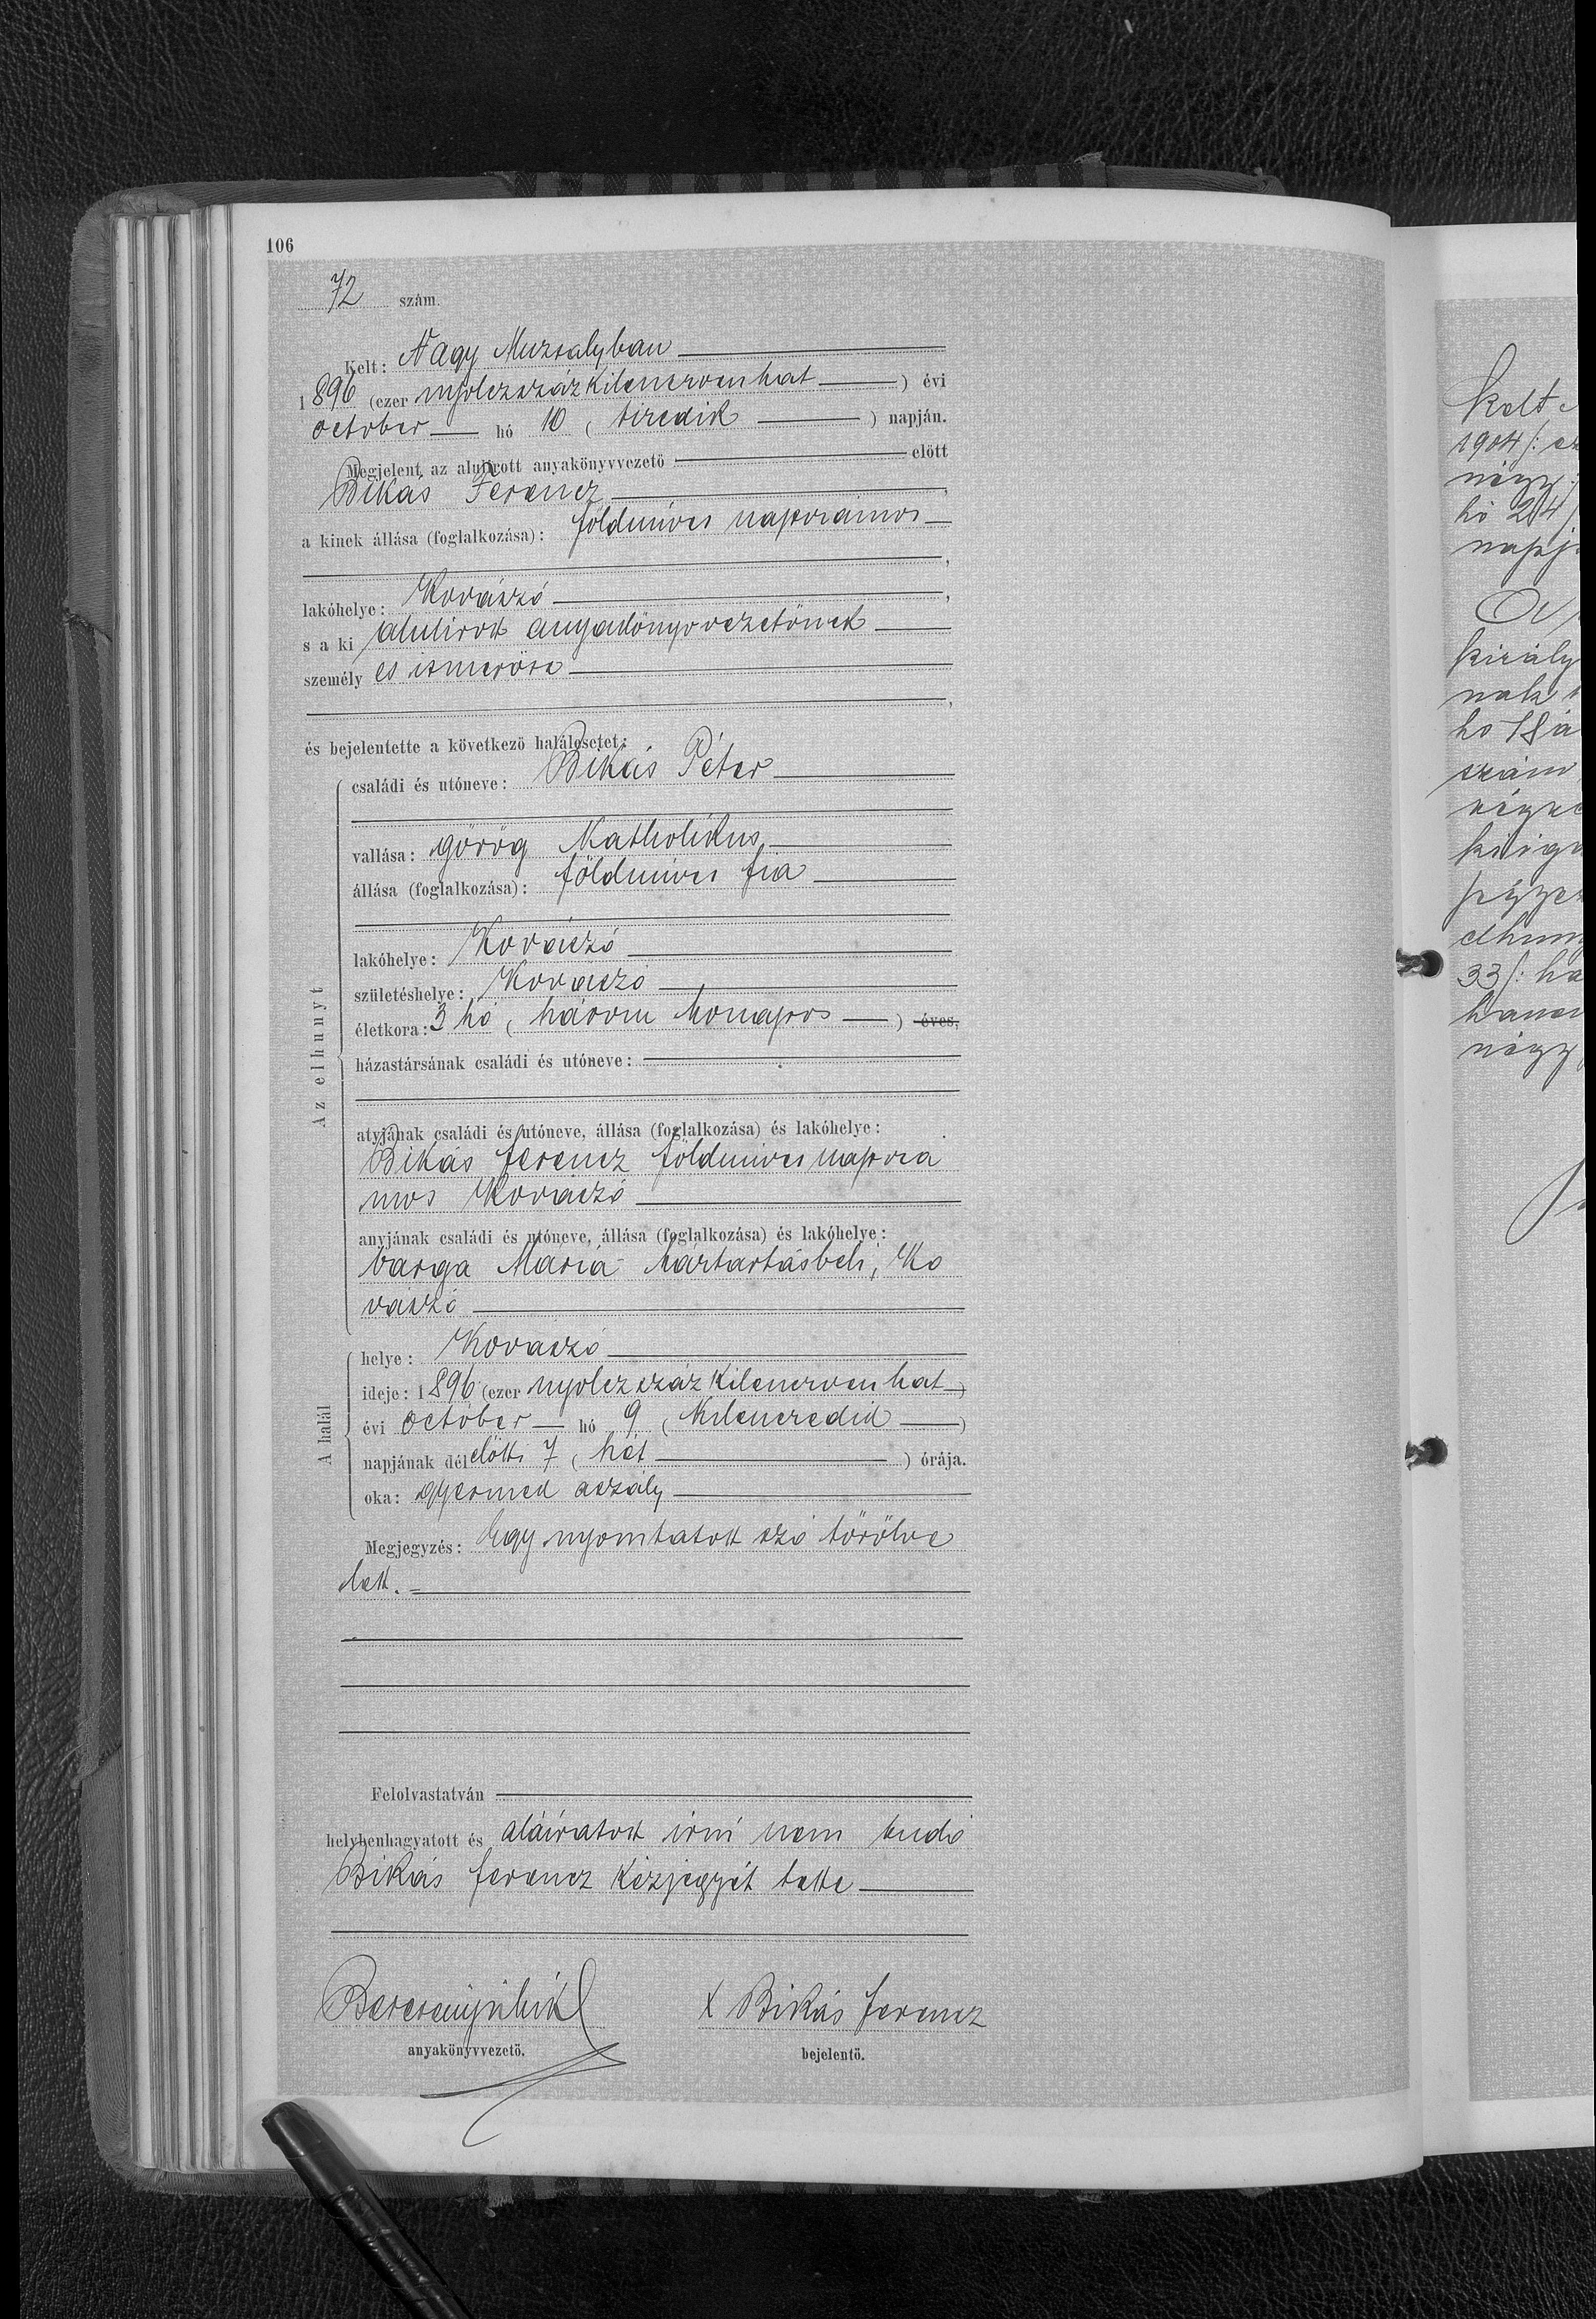 106
72 szám.
Kelt: Nagy Muzsalyban
1896 (ezer nyolczszázkilenczvenhat) évi
october hó 10 (tizedik) napján.
Megjelent az alulirott anyakönyvvezető előtt
Bikás Ferencz,
a kinek állása (foglalkozása): földmives napszámos
,
lakóhelye: Kovászó,
s a ki alulirott anyakönyvvezetőnek
személyes ismerőse
,
és bejelentette a következő halálesetet:
családi és utóneve: Bikás Péter
vallása: görög Katholikus
állása (foglalkozása): földmives fia
lakóhelye: Kovászó
születéshelye: Kovászó
Az elhunyt
életkora: 3 hó (három honapos) éves,
házastársának családi és utóneve:
atyjának családi és utóneve, állása (foglalkozása) és lakóhelye:
Bikás Ferencz földmives napszá
mos Kovászó
anyjának családi és utóneve, állása (foglalkozása) és lakóhelye:
Varga Mária háztartásbeli, Ko
vászó
helye: Kovászó
ideje: 1896 (ezer nyolczszázkilenczvenhat)
A halál
évi october hó 9 (kilenczedik)
napjának délelőtti 7 (hét) órája.
oka: gyermek aszály
Megjegyzés: Egy nyomtatott szó törölve
lett.
Felolvastatván
helybenhagyatott és aláiratott irni nem tudó
Bikás Ferencz kézjegyét tette
X Bikás Ferencz
anyakönyvvezető. bejelentő.
Kelt
1904
négy
hó 24
napj
király
nak
hó 18 á
szám
pégyez
elhuny
33/: ha
négy